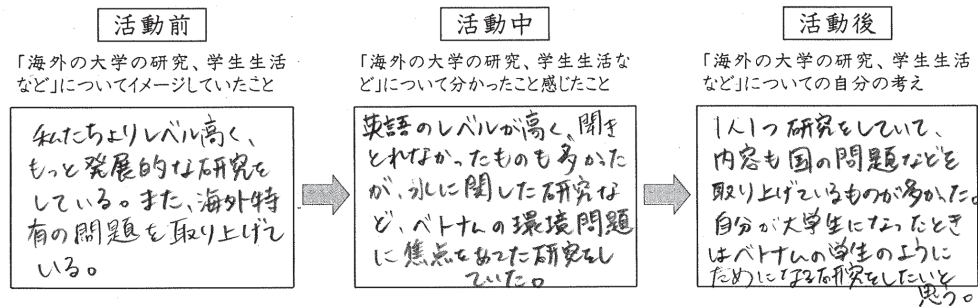 活動前
「海外の大学の研究、学生生活
など」についてイメージしていたこと
私たちよりレベル高く、
もっと発展的な研究を
している。また、海外特
有の問題を取り上げて
いる。
活動中
「海外の大学の研究、学生生活な
ど」について分かったこと感じたこと
英語のレベルが高く、聞き
とれなかったものも多かった
が、水に関した研究な
ど、ベトナムの環境問題
に焦点をあてた研究をし
ていた。
活動後
「海外の大学の研究、学生生活
など」についての自分の考え
1人1つ研究をしていて、
内容も国の問題などを
取り上げているものが多かった。
自分が大学生になったとき
はベトナムの学生のように
ためになる研究をしたいと
思う。